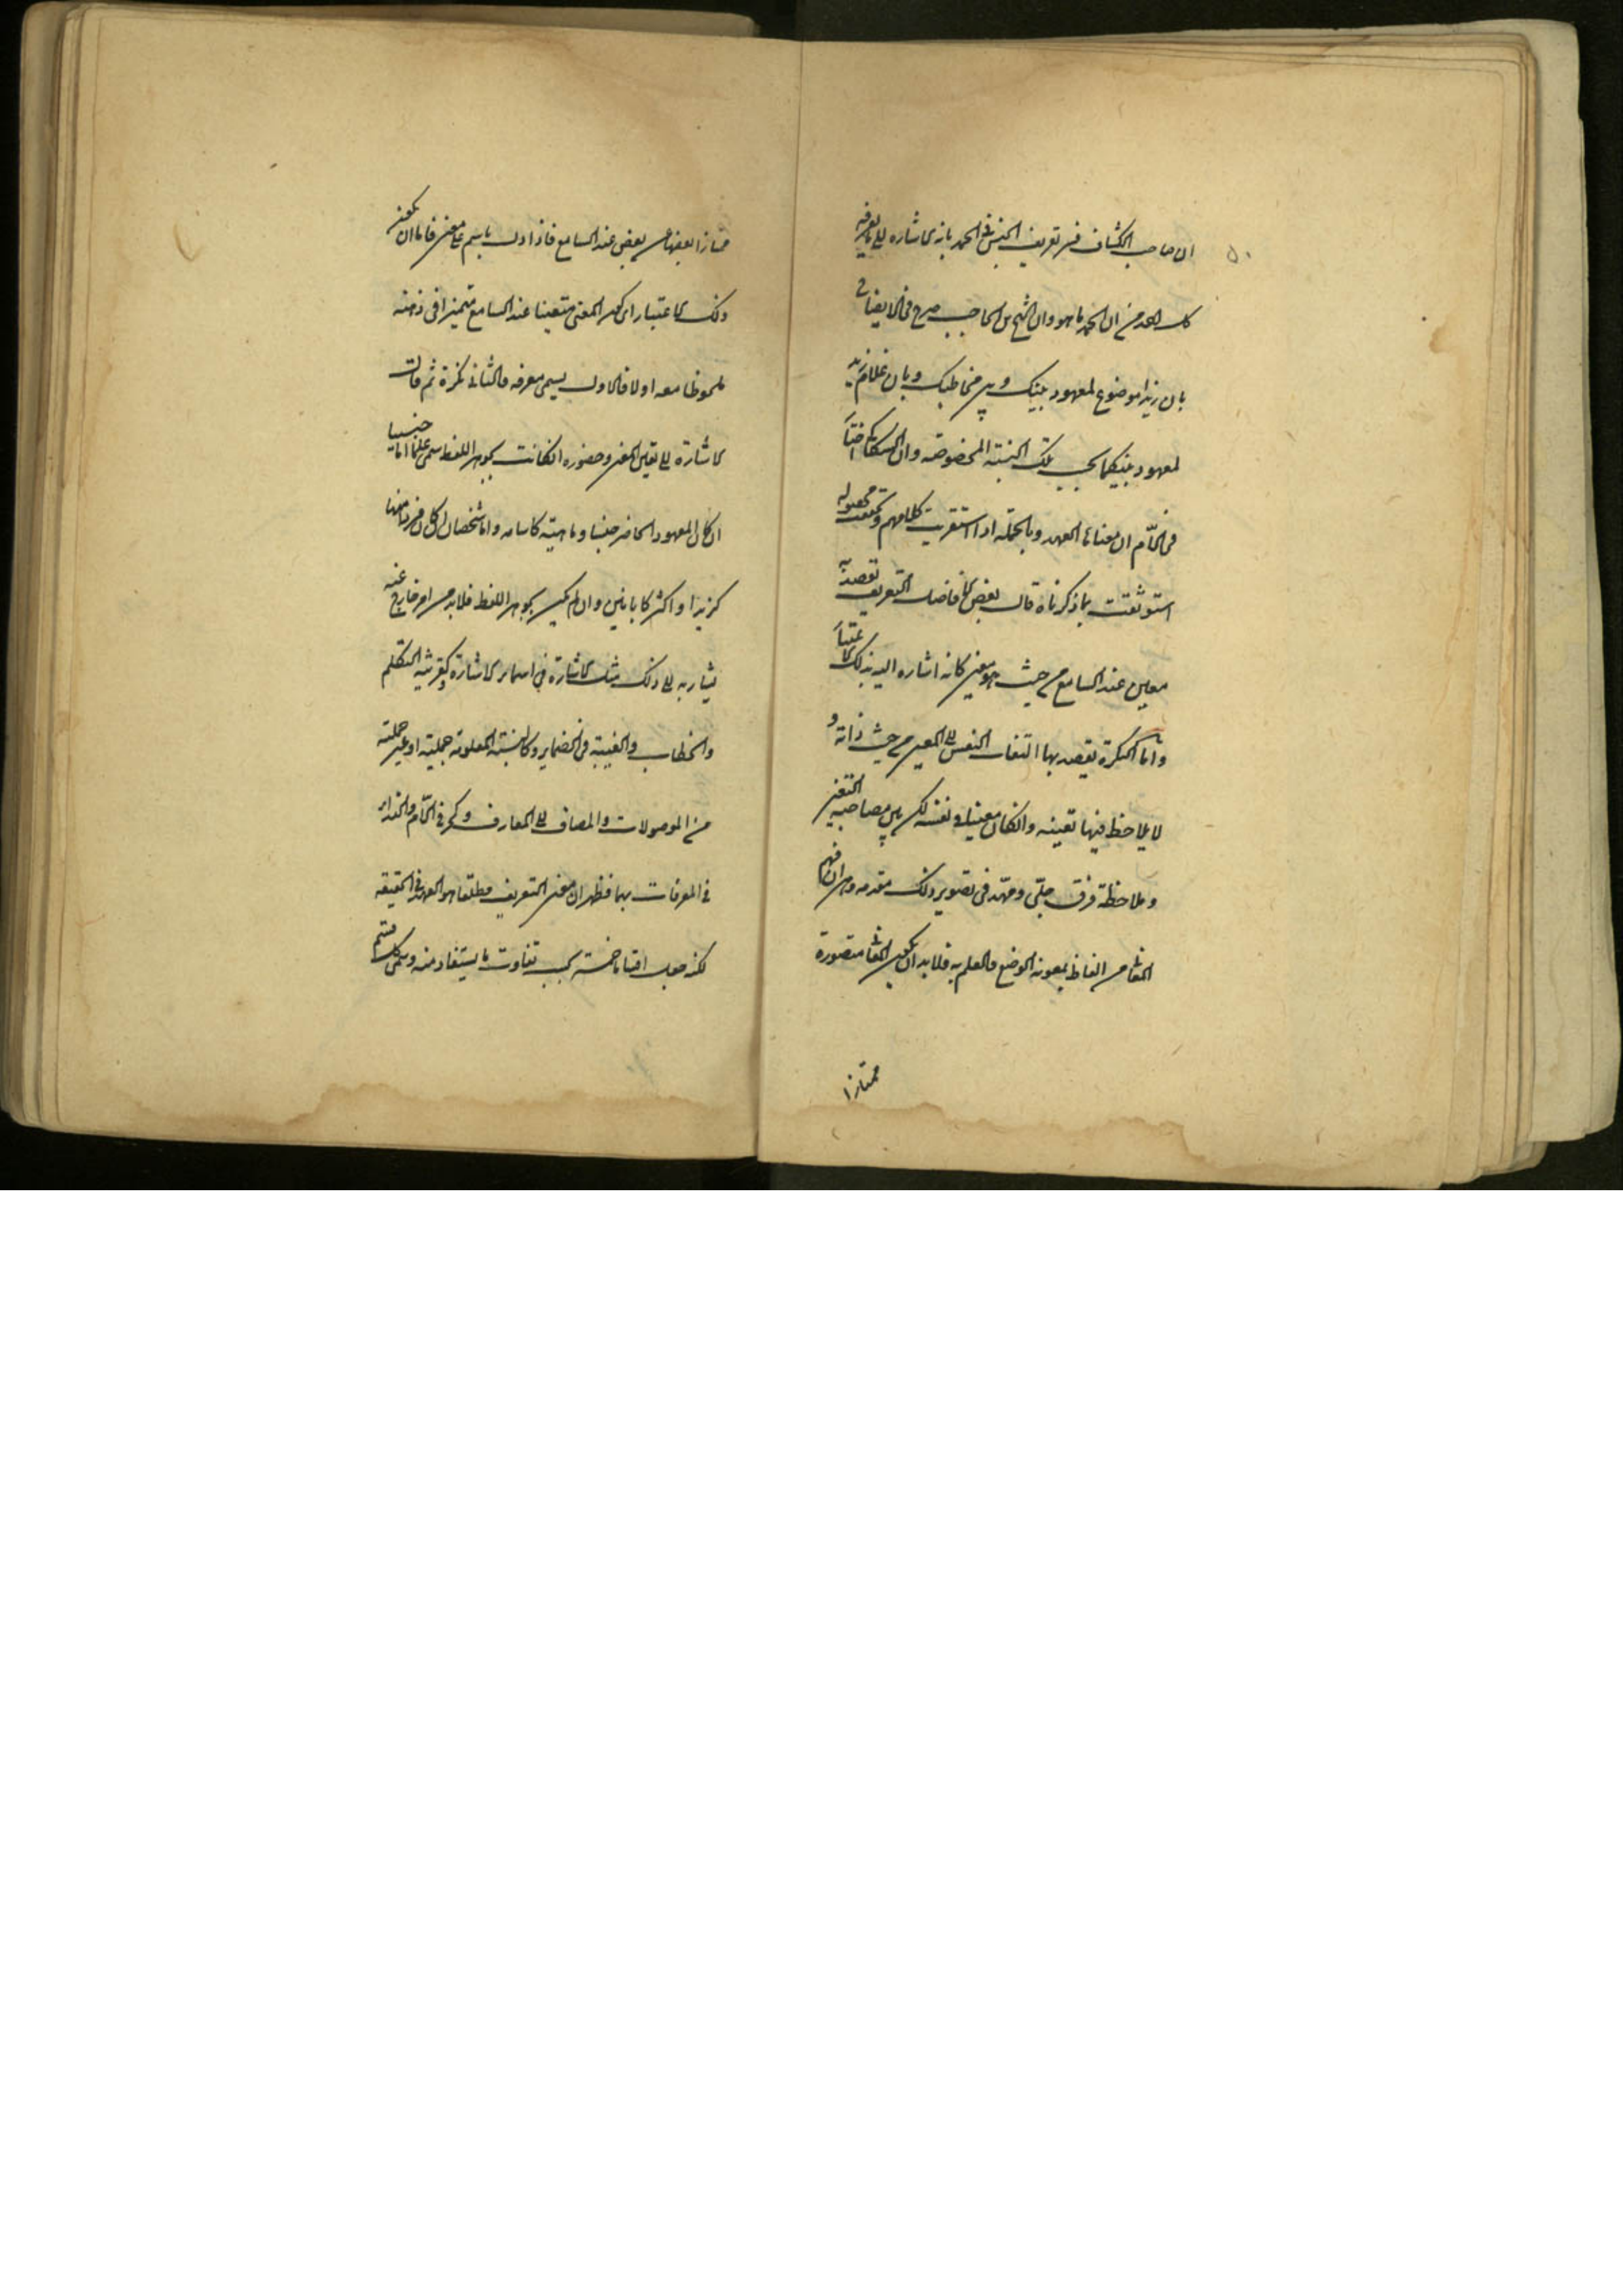 ان صاحب الكشاف فسر تعريف الجنس في الحمد بانه الاشارة الى ما يعرفه
كل احد من ان الحمد ما هو وان الشيخ ابن الحاجب صرح في الايضاح
بان زيدا موضوع لمعهود بينك وبين مخاطبك وبان غلام زيد
لمعهود بينكما بحسب تلك النسبة المخصوصة وان السكاكي اختار
في اللام ان معناها العهد وبالجملة اذا استقريت كلامهم وتحققت محصوله
استوثقت بما ذكرناه قال بعض الافاضل التعريف يقصد به
معين عند السامع من حيث هو معين كانه اشارة اليه بذلك الاعتبار
واما النكرة يقصد بها التفات النفس الى المعين من حيث ذاته و
لا يلاحظ فيها تعينه وان كان معينا في نفسه لكن بين مصاحبة التعين
وملاحظته فرق جلي ومهد في تصوير ذلك مقدمة وهي ان فهم
المعاني من الفاظ بمعونة الوضع والعلم به فلابد ان يكون المعاني متصورة
ممتازا
ممتازا بعضها عن بعض عند السامع فاذا دل باسم على معنى فاما ان يكون
ذلك الاعتبار اي كون المعنى متعينا عند السامع متميزا في ذهنه
ملحوظا معه اولا فالاول يسمى معرفة والثاني نكرة ثم قال
الاشارة الى تعين المعنى وحضوره ان كانت بجوهر اللفظ سمى علما اما جنسيا
ان كان المعهود الحاضر جنسا وماهية كاسامة واما شخصيا ان كان فردا منها
كزيد او اكثر كابانين وان لم يكن بجوهر اللفظ فلابد من امر خارج عنه
يشار به الى ذلك مثل الاشارة في اسماء الاشارة وكقرينة التكلم
والخطاب والغيبة في الضماير وكالنسبة المعلومة جملية او غير جملية
من الموصولات والمضاف الى المعارف وكحرفي اللام والنداء
في المعرفات بهما فظهر ان معنى التعريف مطلقا هو العهد في الحقيقة
لكنه جعل اقساما خمسة بحسب تفاوت ما يستفاد منه وسمى كل قسم